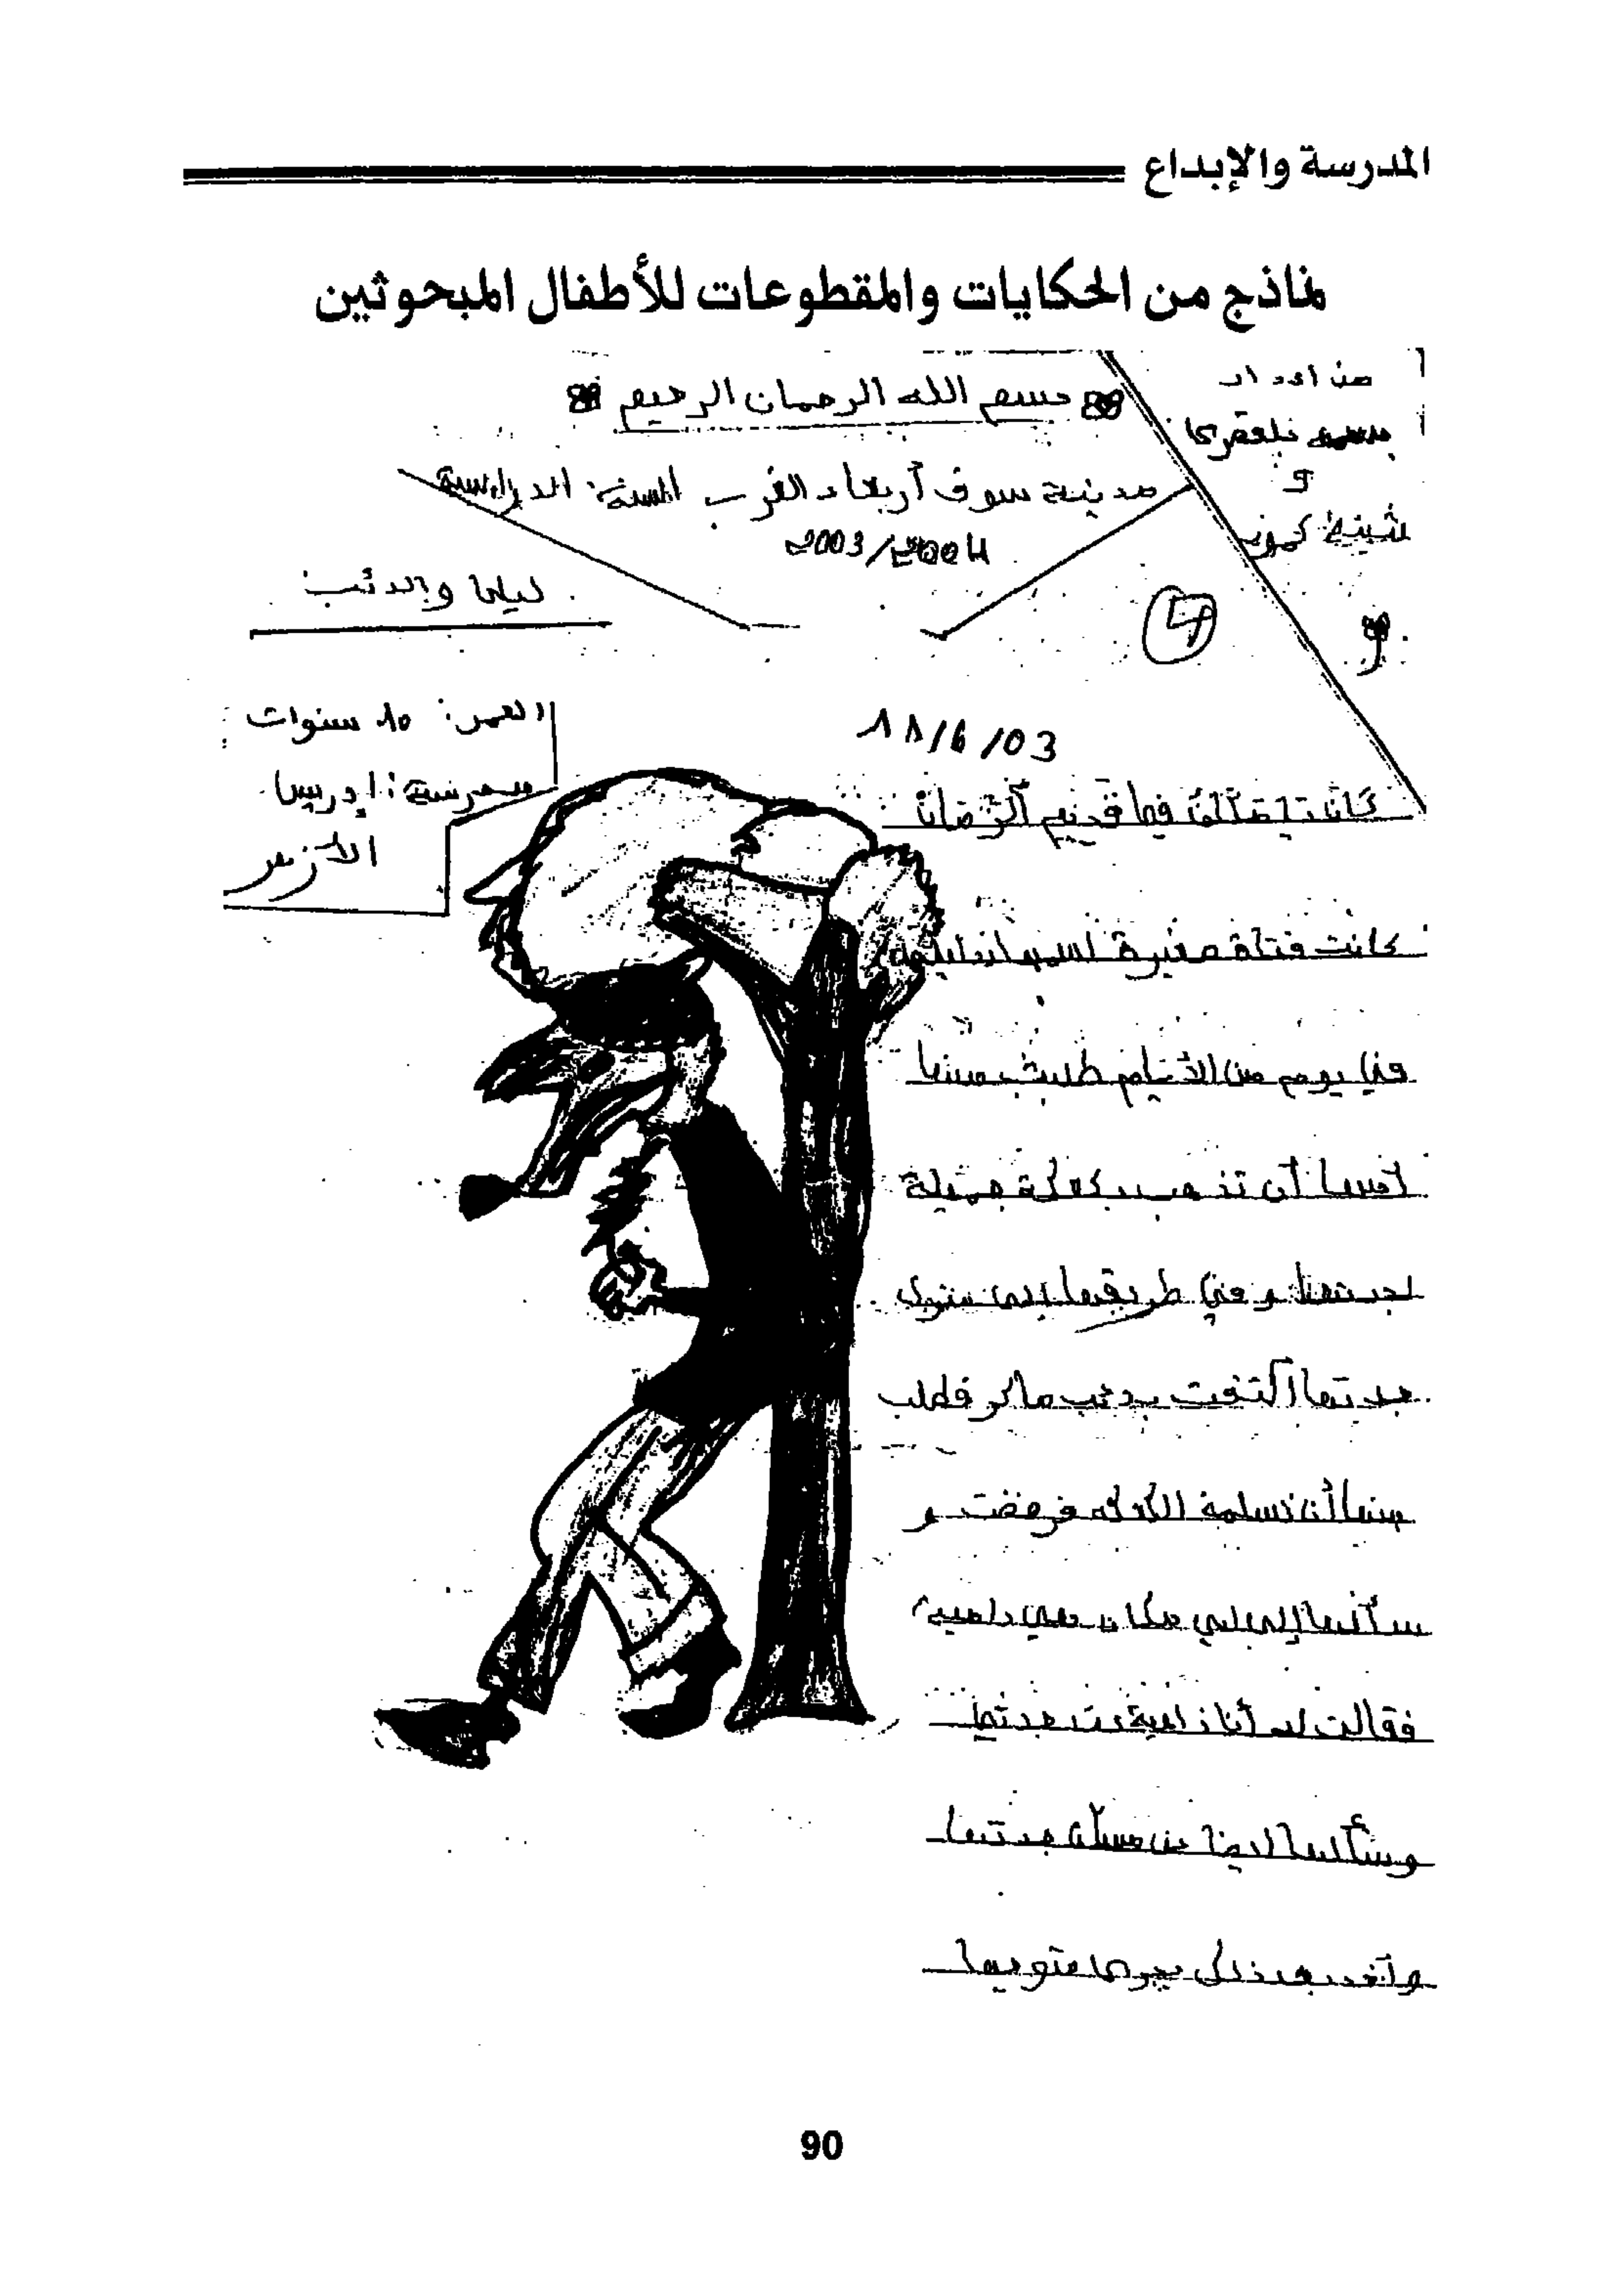 المدرسة والإبداع
نماذج من الحكايات والمقطوعات للأطفال المبحوثين
من اعداد
و
بسم الله الرحمان الرحيم
مدينة سوق أربعاء الغرب السنة الدراسية
2003/2004
ليلى والدئب
4
العمر: 10 سنوات
مدرسة: إدريس
الأزهر
18/6/03
كان يا مكان في قديم الزمان
كانت فتاة صغيرة اسمها ليلى
في يوم من الأيام طلبت منها
أمها أن تذهب بكعكة جميلة
لجدتها و في طريقها إلى منزل
جدتها التقت بدئب ماكر فطلب
منها أن تسلمه الكعكة فرفضت و
سألها إلى أي مكان هي داهبة
فقالت له أنا ذاهبة عند جدتي
وسألها ايضا عن مسكن جدتها
وأخد بعد ذلك يجري متوجها
90